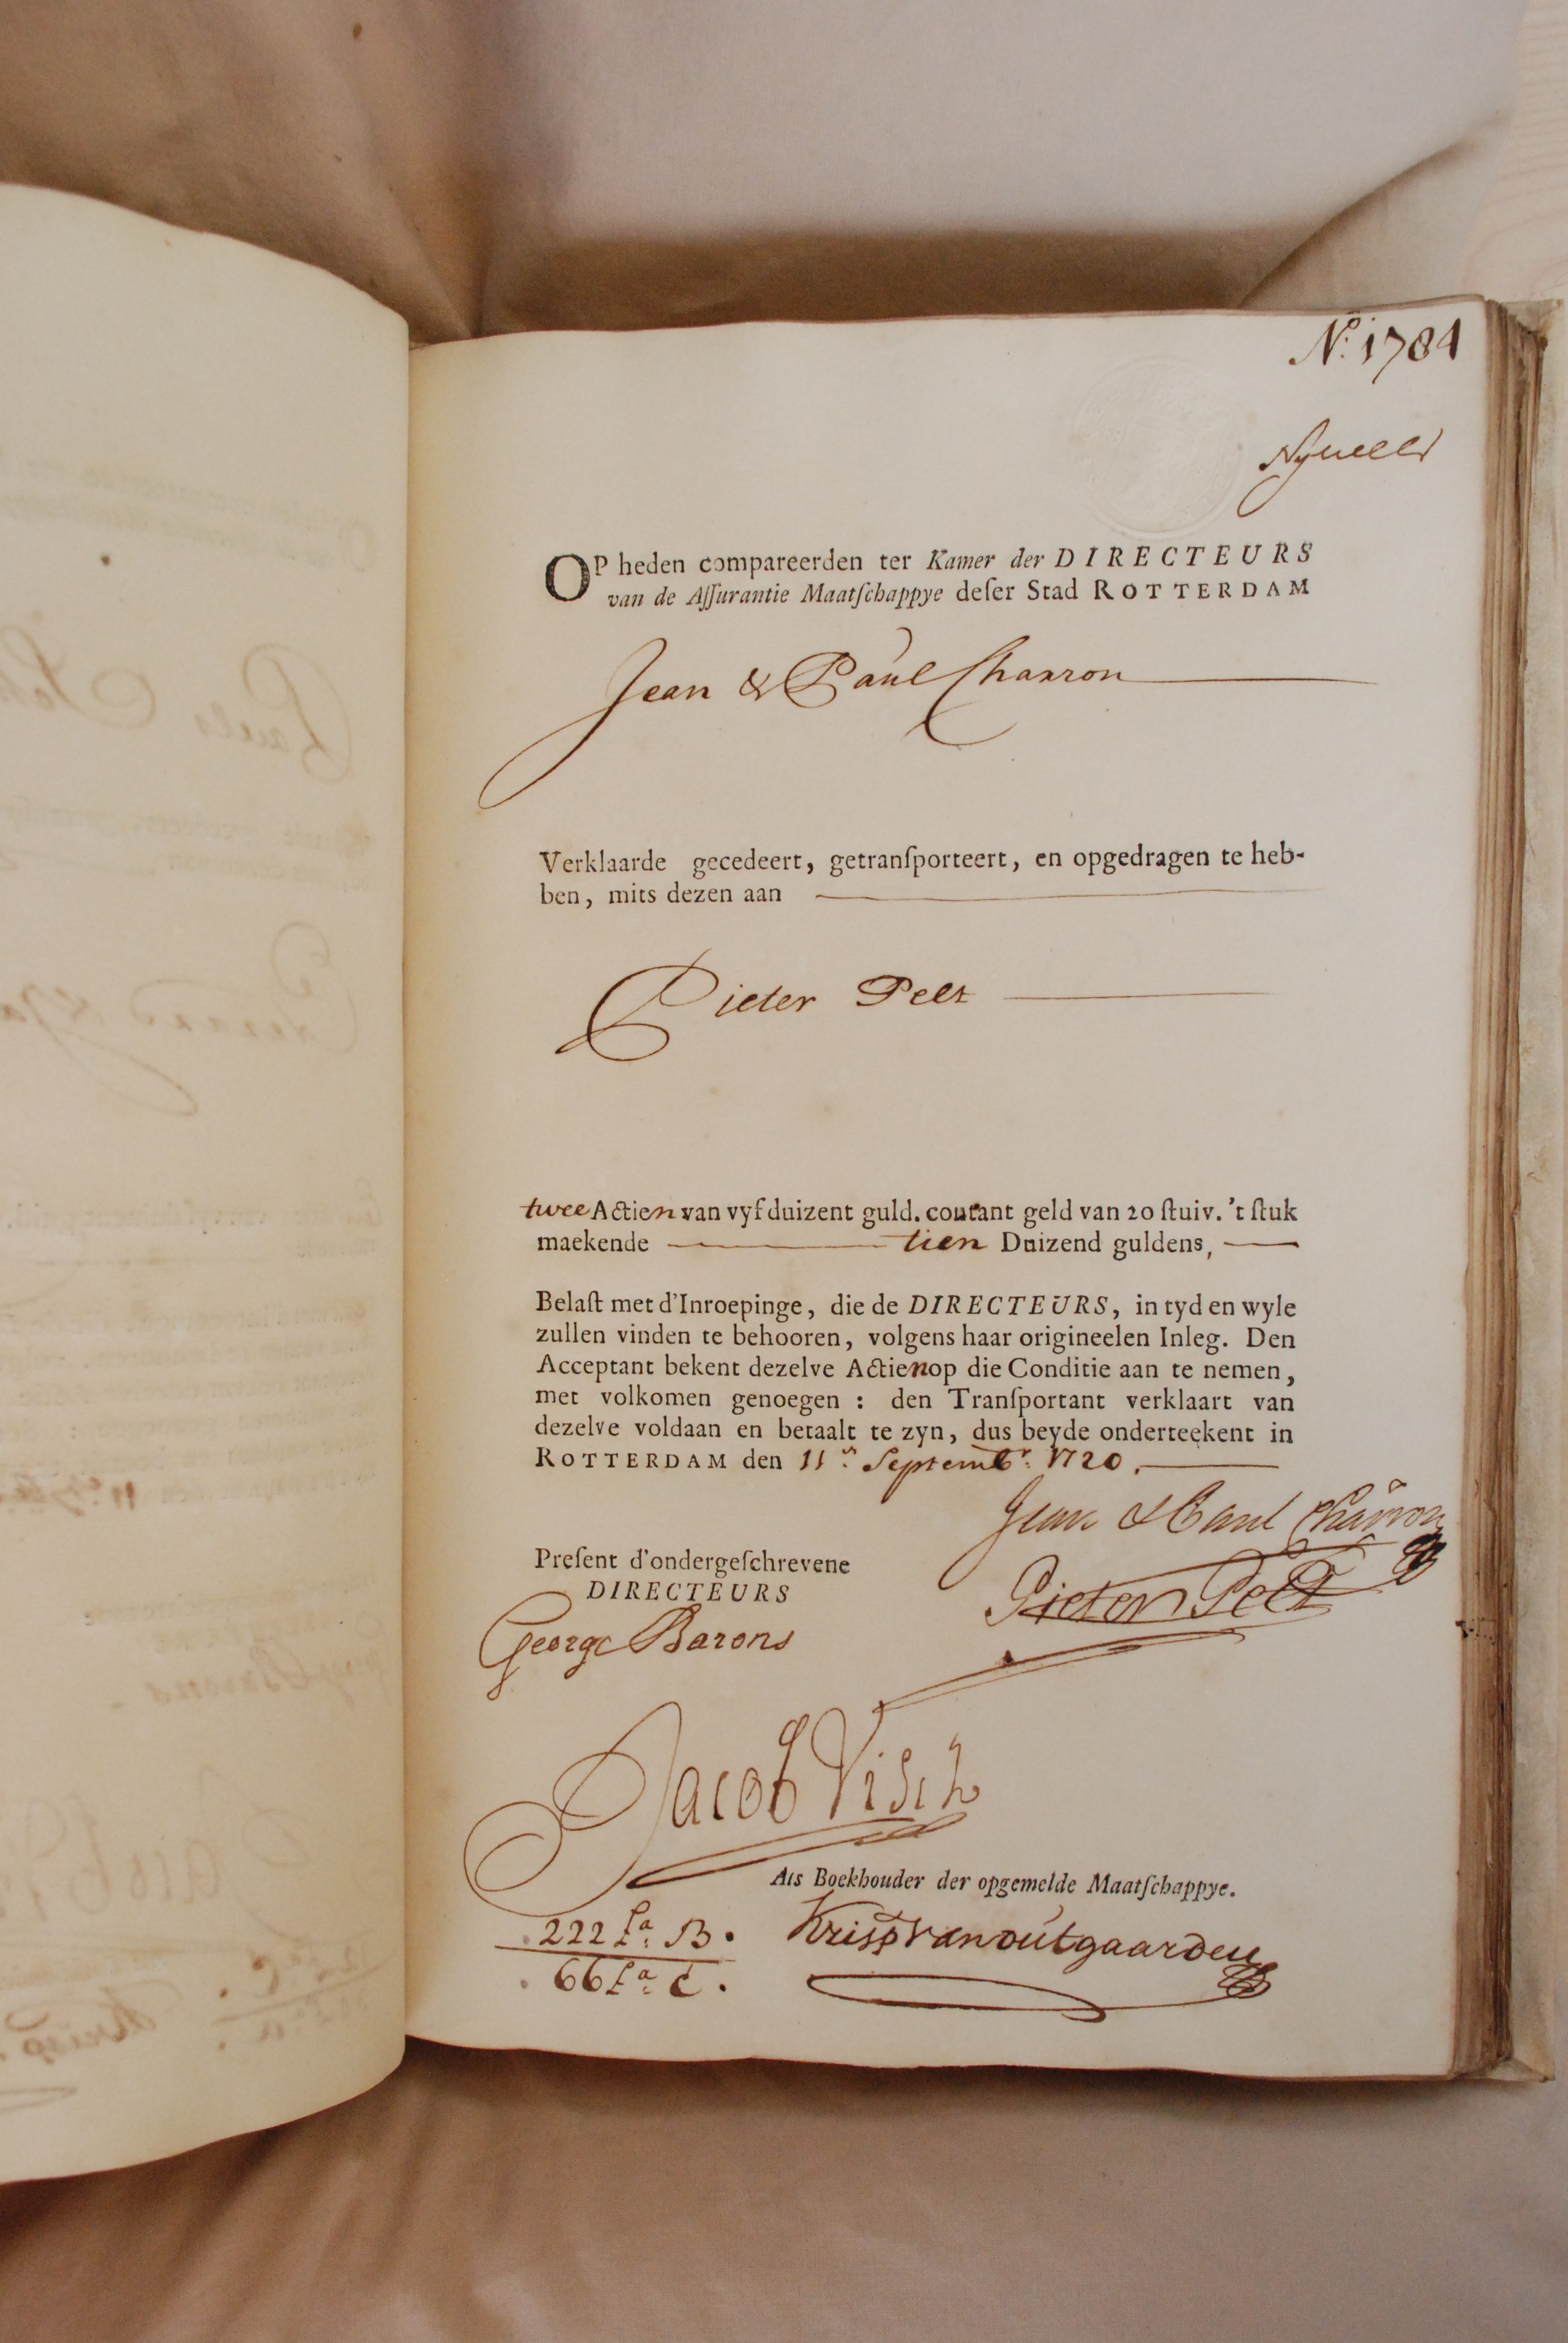 No. 1784
OP heden compareerden ter Kamer der DIRECTEURS
van de Aſſurantie Maatſchappye deſer Stad ROTTERDAM
Jean & Paul Charron
Verklaarde gecedeert, getranſporteert, en opgedragen te heb-
ben, mits dezen aan
Pieter Pelt
twee Actien van vyf duizent guld. courant geld van 20 ſtuiv. 't ſtuk
maekende tien Duizend guldens,
Belaſt met d'Inroepinge, die de DIRECTEURS, in tyd en wyle
zullen vinden te behooren, volgens haar origineelen Inleg. Den
Acceptant bekent dezelve Actien op die Conditie aan te nemen,
met volkomen genoegen : den Tranſportant verklaart van
dezelve voldaan en betaalt te zyn, dus beyde onderteekent in
ROTTERDAM den 11n Septembr. 1720.
Jean & Paul Charron
Preſent d'ondergeſchrevene
DIRECTEURS
Pieter Pelt
George Barons
Jacob Visch
Als Boekhouder der opgemelde Maatſchappye.
222 La. B.
Krisp van outgaarden
66 La. C.